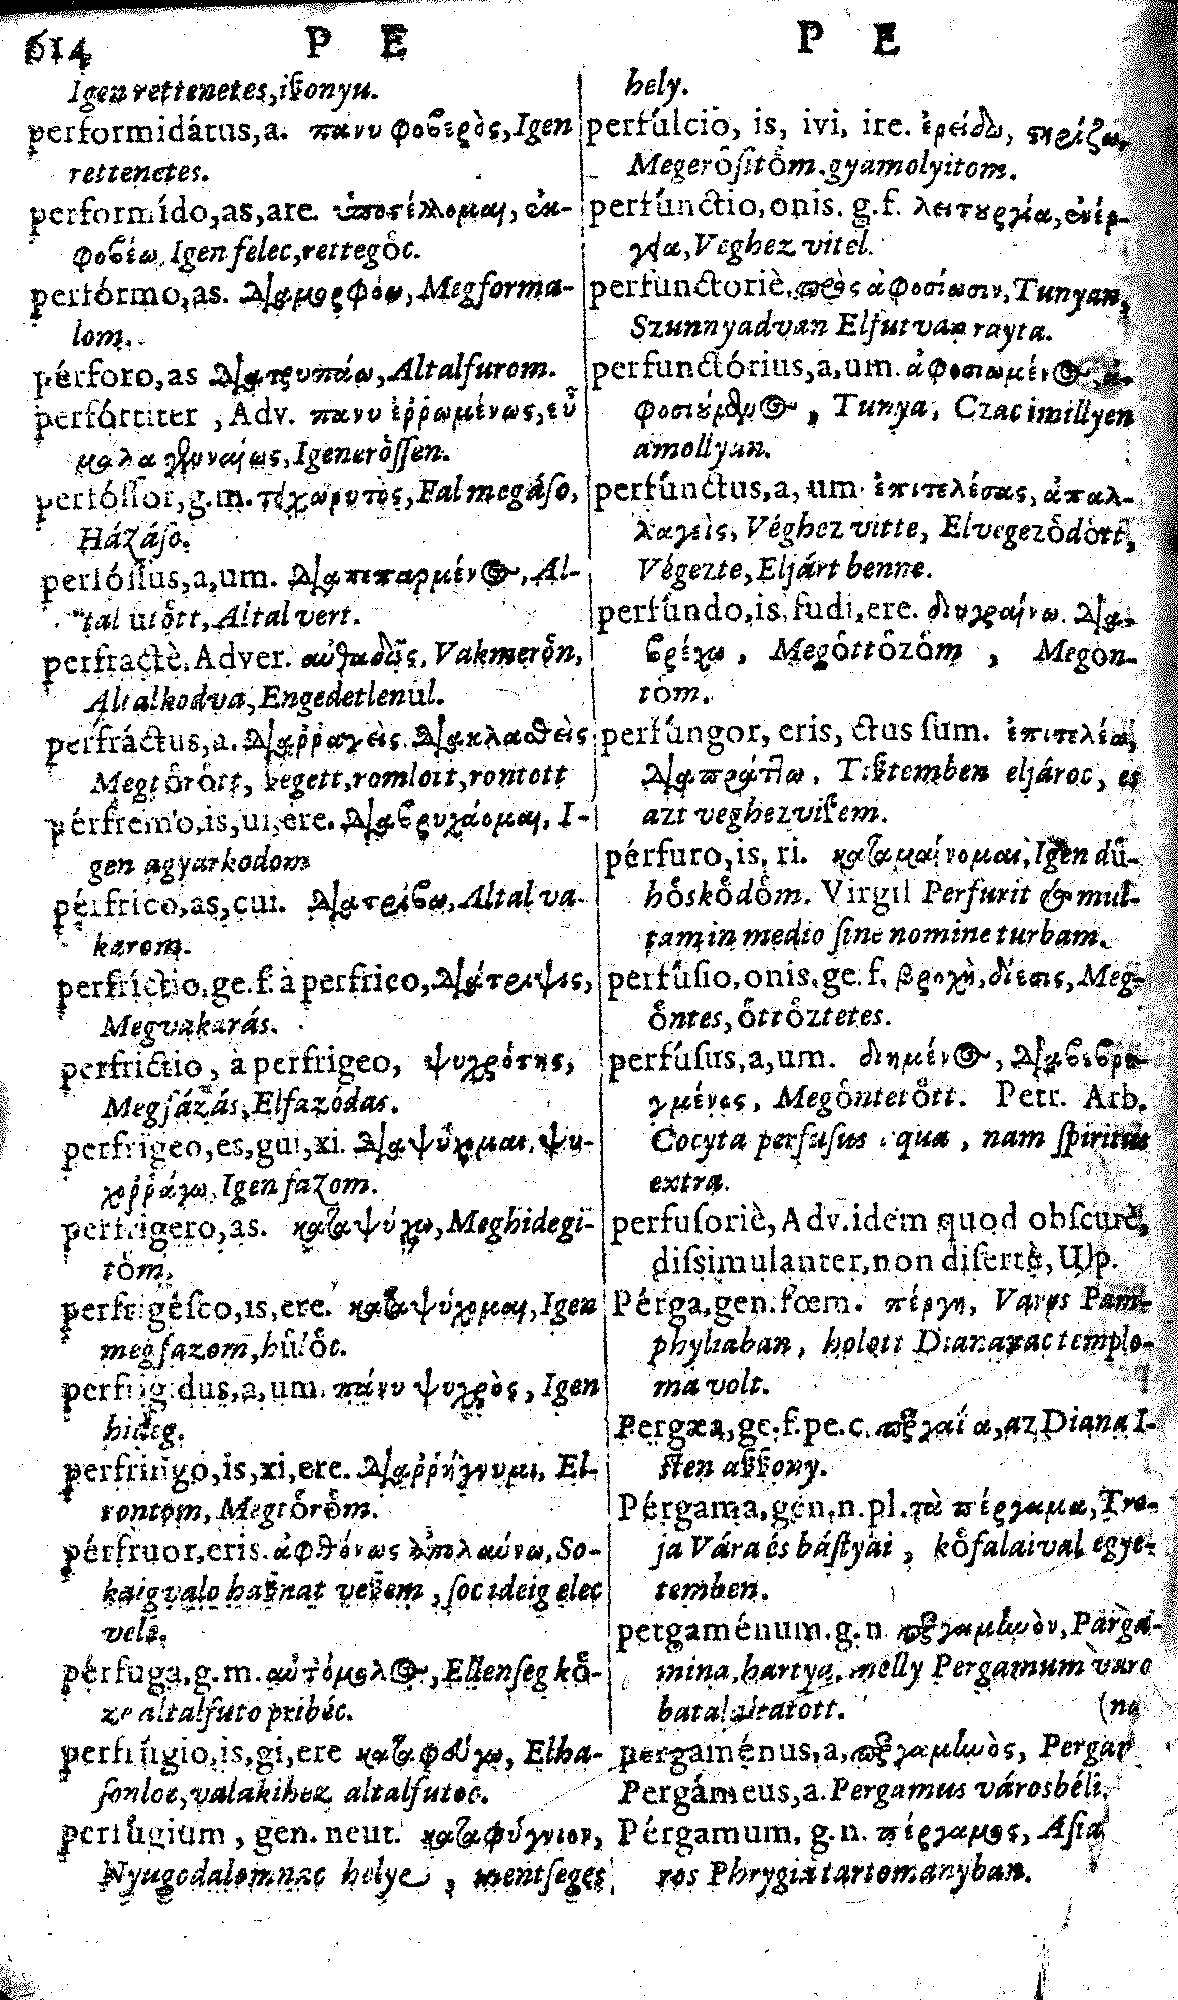 614 P E
Igen rettenetes, ißonyu.
performidátus, a. πανυ φοβερὸς, Igen
rettenetes.
performído, as, are. ὑποστέλλομαι, ἐκ-
φοβέω, Igen felec, rettegoͤc.
perfórmo, as. διαμορφόω, Megforma-
lom.
pérforo, as διατρυπάω, Altalfurom.
perfórtiter, Adv. πανυ ἐῤῥωμένως, εὖ
μαλα γενναίως, Igeneroͤſſen.
perfóſſor, g.m. τοιχωρυτὸς, Fal megáſo,
Házáſo.
perfóſſus, a, um. διαπεπαρμένος, Al-
tal utoͤtt, Altal vert.
perfractè, Adver. αὐθαδῶς, Vakmeroͤn,
Altalkodva, Engedetlenul.
perfráctus, a. διαῤῥαγεὶς, διακλασθεὶς
Megtoͤroͤtt, ßegett, romlott, rontott
pérfremo, is, ui, ere. διαβρυχάομαι, I-
gen agyarkodom
pérfrico, as, cui. διατρίβω, Altal va-
karom.
perfríctio, ge. f. à perfrico, διάτριψις,
Megvakarás.
perfrictio, à perfrigeo, ψυχρότης,
Megfázás, Elfazódas.
perfrigeo, es, gui, xi. διαψύχομαι, ψυ-
χοῤῥάγω, Igen fazom.
perfrigero, as. καταψύχω, Meghidegi-
toͤm.
perfrigéſco, is, ere. καταψύχομαι, Igen
megfazom, huͤloͤc.
perfrigidus, a, um. πάνυ ψυχρὸς, Igen
hideg.
perfringo, is, xi, ere. διαῤῥήγνυμι, El-
rontom, Megtoͤroͤm.
pérfruor, eris. ἀφθόνως ἀπολαύνω, So-
kaig valo haßnat veßem, ſoc ideig elec
vele.
pérfuga, g. m. αὐτόμολος, Ellenſeg koͤ-
ze altalfuto pribéc.
perfúgio, is, gi, ere καταφεύγω, Elha-
ſonloc, valakihez altalfutoc.
perfugium, gen. neut. καταφύγνιον,
Nyugodalomnac helye, mentſeges
P E
hely.
perfúlcio, is, ivi, ire. ἐρείδω, στηρίζω,
Megeroͤſitoͤm. gyamolyitom.
perfúnctio, onis. g. f. λειτυργία, ἐνέρ-
γεία, Veghez vitel.
perfunctoriè, πρὸς ἀφοσίωσιν, Tunyan,
Szunnyadvan Elfutvan rayta.
perfunctórius, a, um. ἀφοσιωμένος, ἀ-
φοσιούμενος, Tunya, Czac imillyen
amollyan.
perfúnctus, a, um. ἐπιτελέσας, ἀπαλ-
λαγεὶς, Véghez vitte, Elvegezoͤdoͤtt,
Végezte, Eljárt benne.
perfúndo, is, fudi, ere. διυγραίνω, δια-
βρέχω, Megoͤttoͤzoͤm, Megon-
tom.
perfúngor, eris, ctus ſum. ἐπιτελέω,
διαπράττω, Tißtemben eljároc, es
azt veghez vißem.
pérfuro, is, ri. καταμαίνομαι, Igen duͤ-
hoͤskoͤdoͤm. Virgil Perfurit & mul-
tam in medio ſine nomine turbam.
perfúſio, onis. ge. f. βροχὴ, δίεσις, Meg-
oͤntes, oͤttoͤztetes.
perfúſus, a, um. διημένος, διαβεβρε-
γμένος, Megoͤntetoͤtt. Petr. Arb.
Cocyta perfuſus aqua, nam ſpiritus
extra.
perfuſoriè, Adv. idem quod obſcurè,
diſsimulanter, non diſertè, Ulp.
Pérga, gen. fœm. πέργη, Varos Pam-
phyliaban, holott Diananac templo-
ma volt.
Pergæa, ge. f. pe. c. περγαία, az Diana I-
ſten aßßony.
Pérgama, gen. n. pl. τὰ πέργαμα, Tro-
ja Vára és báſtyai, koͤfalaival egye-
temben.
pergaménum. g. n. περγαμενὸν, Parga-
mina, hartya, melly Pergamum varo
batalaltatott. (na
pergaménus, a, περγαμενὸς, Pergar
Pergámeus, a. Pergamus városbéli.
Pérgamum, g. n. πέργαμος, Aſia
ros Phrygia tartomanyban.